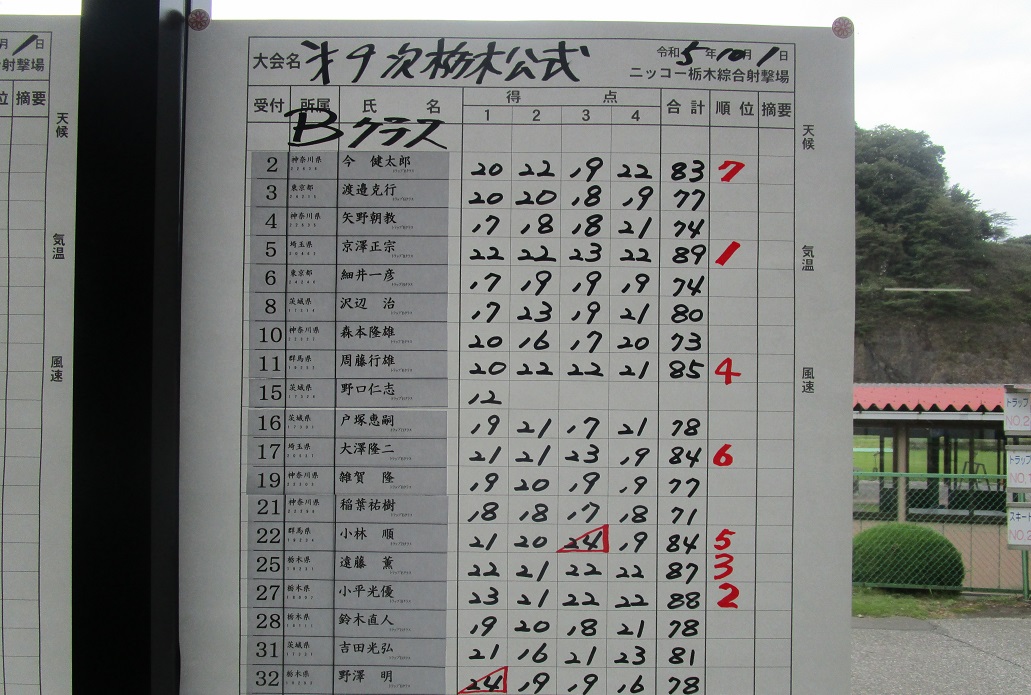 大会名 第9次栃木公式 令和5年10月1日
ニッコー栃木綜合射撃場
受付 所属 氏 名 得 点 合計 順位 摘要
1 2 3 4
Bクラス
2 神奈川県 今 健太郎 20 22 19 22 83 7
3 東京都 渡邉克行 20 20 18 19 77
4 神奈川県 矢野朝教 17 18 18 21 74
5 埼玉県 京澤正宗 22 22 23 22 89 1
6 東京都 細井一彦 17 19 19 19 74
8 茨城県 沢辺 治 17 23 19 21 80
10 神奈川県 森本隆雄 20 16 17 20 73
11 群馬県 周藤行雄 20 22 22 21 85 4
15 茨城県 野口仁志 12
16 茨城県 戸塚恵嗣 19 21 17 21 78
17 埼玉県 大澤隆二 21 21 23 19 84 6
19 神奈川県 雑賀 隆 19 20 19 19 77
21 神奈川県 稲葉祐樹 18 18 17 18 71
22 群馬県 小林 順 21 20 24 19 84 5
25 栃木県 遠藤 薫 22 21 22 22 87 3
27 栃木県 小平光優 23 21 22 22 88 2
28 栃木県 鈴木直人 19 20 18 21 78
31 茨城県 吉田光弘 21 16 21 23 81
32 栃木県 野澤 明 24 19 19 16 78
天候
気温
風速
月1日
合射撃場
位 摘要
天候
気温
風速
トラップ
NO.2
トラップ
NO.1
スキート
NO.2